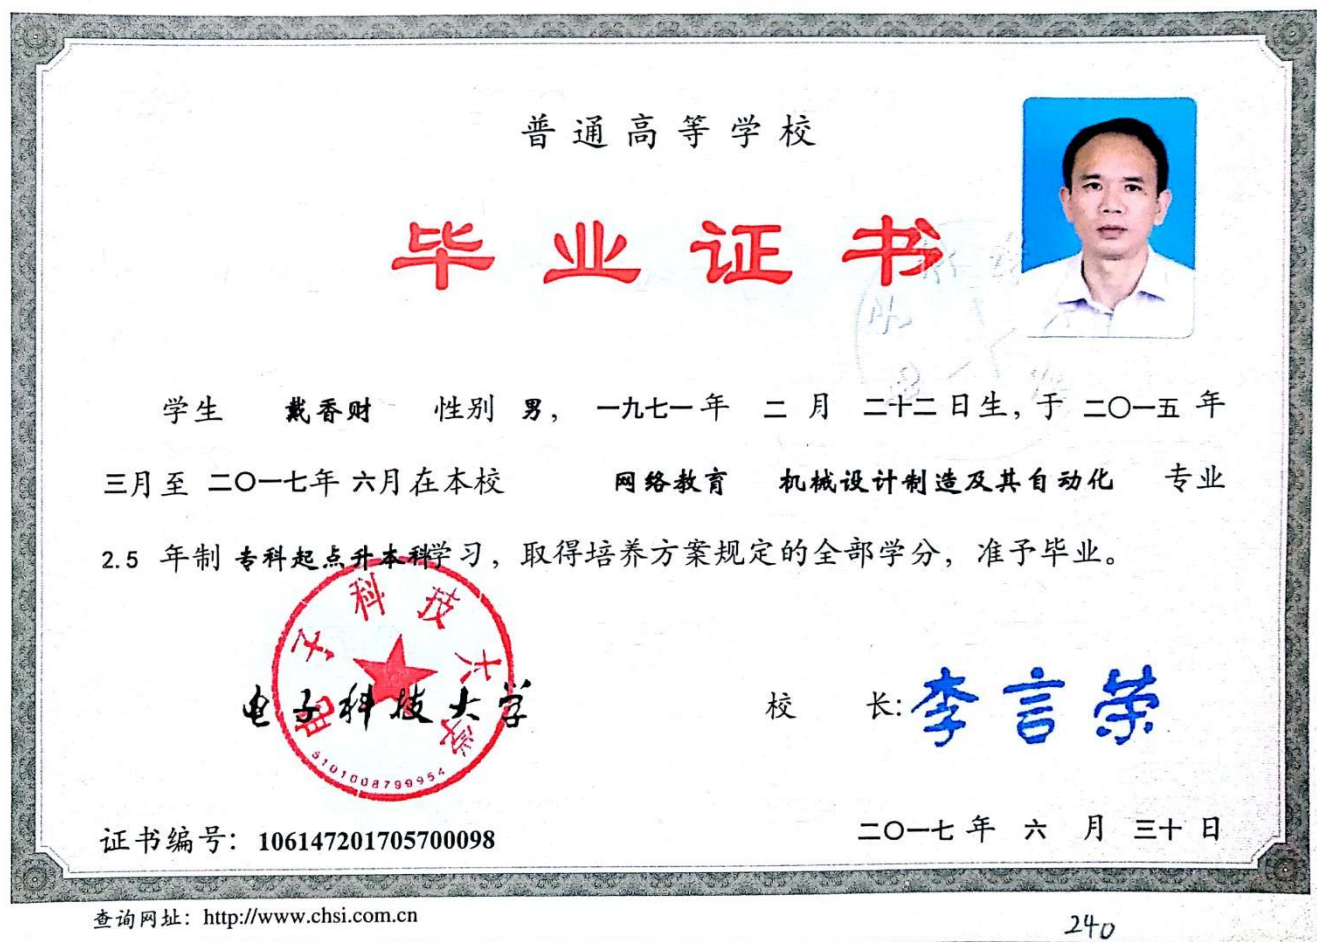 普通高等学校
毕业证书
学生 戴香财 性别 男， 一九七一年 二 月 二十二日生，于 二〇一五 年
三月至 二〇一七年 六月在本校 网络教育 机械设计制造及其自动化 专业
2.5 年制 专科起点升本科学习，取得培养方案规定的全部学分，准予毕业。
电子科技大学
5101008799954
电子科技大学
校 长: 李言荣
证书编号：106147201705700098
二〇一七 年 六 月 三十 日
查询网址：http://www.chsi.com.cn
240